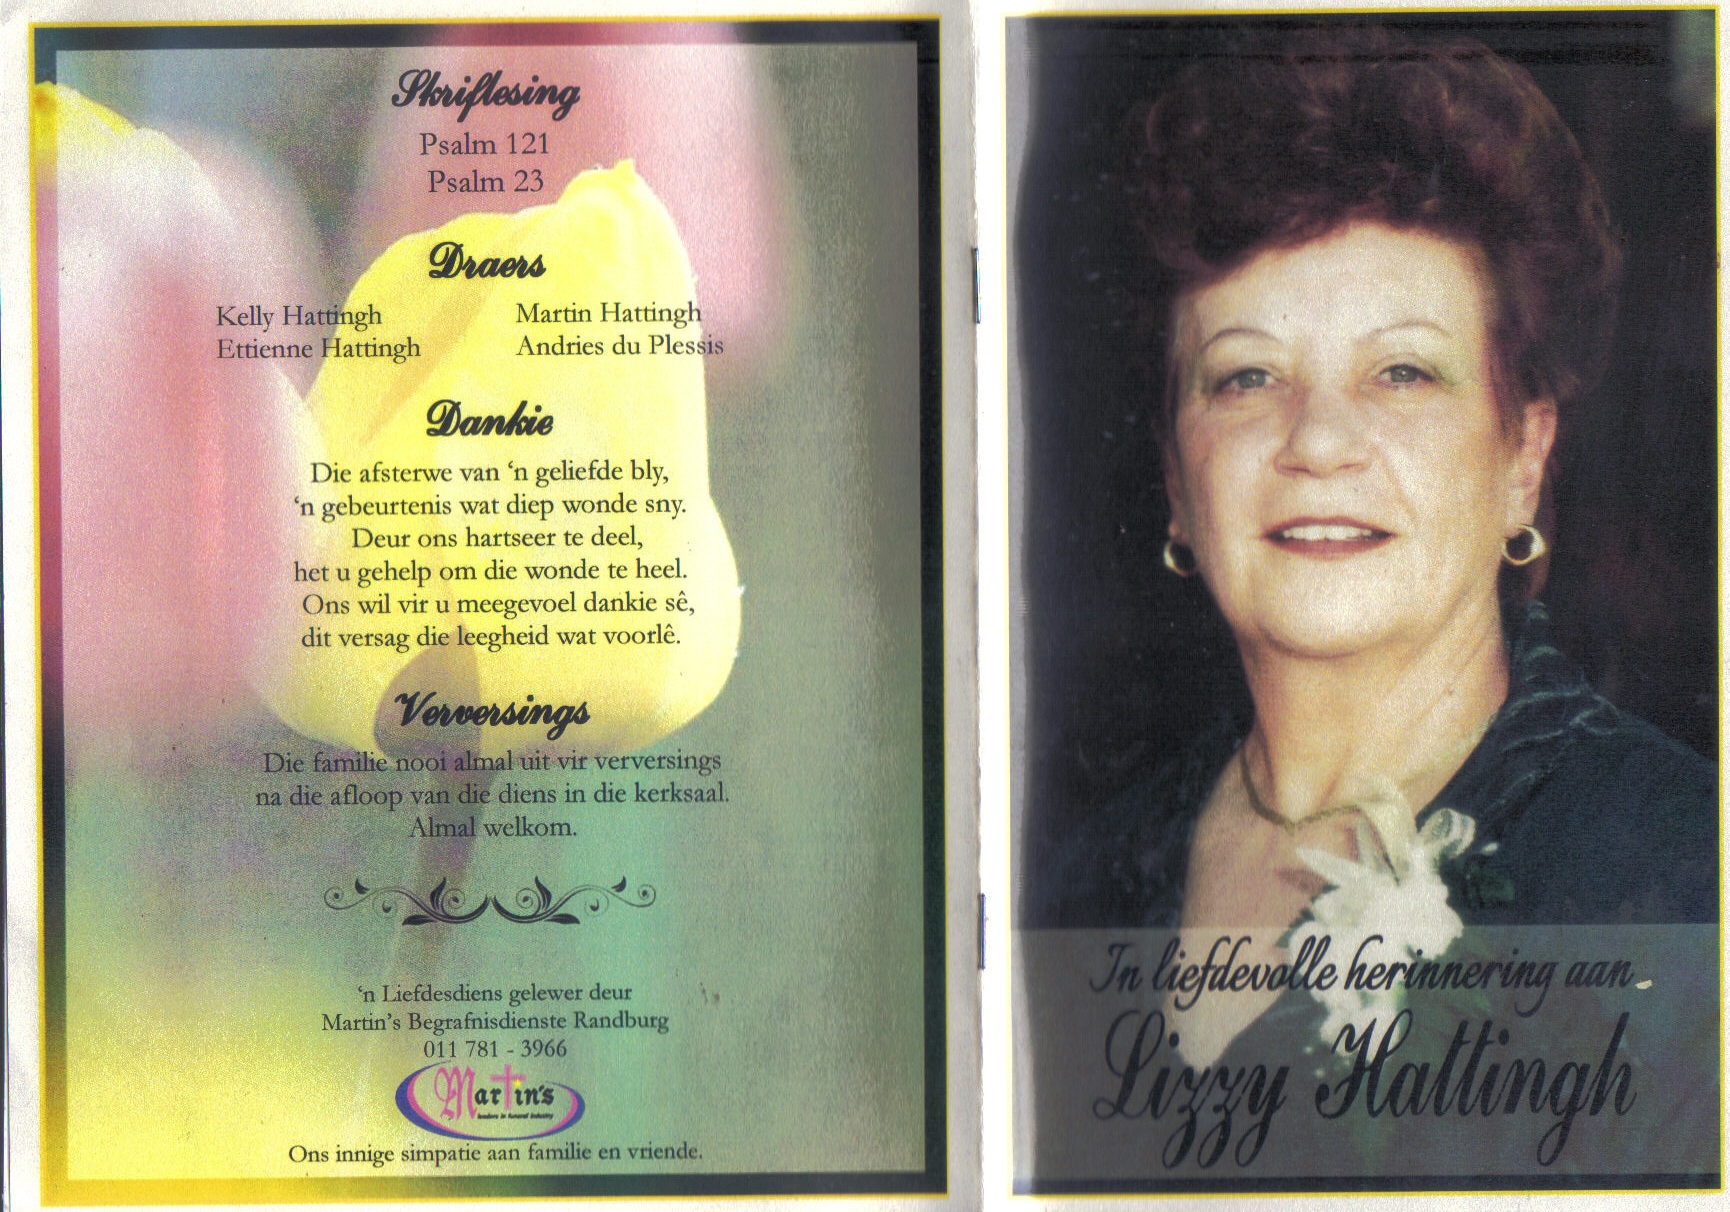 Skriflesing
Psalm 121
Psalm 23
Draers
Kelly Hattingh
Ettienne Hattingh
Martin Hattingh
Andries du Plessis
Dankie
Die afsterwe van ‘n geliefde bly,
‘n gebeurtenis wat diep wonde sny.
Deur ons hartseer te deel,
het u gehelp om die wonde te heel.
Ons wil vir u meegevoel dankie sê,
dit versag die leegheid wat voorlê.
Verversings
Die familie nooi almal uit vir verversings
na die afloop van die diens in die kerksaal.
Almal welkom.
‘n Liefdesdiens gelewer deur
Martin’s Begrafnisdienste Randburg
011 781 - 3966
Martin's
leaders in funeral industry
Ons innige simpatie aan familie en vriende.
In liefdevolle herinnering aan
Lizzy Hattingh